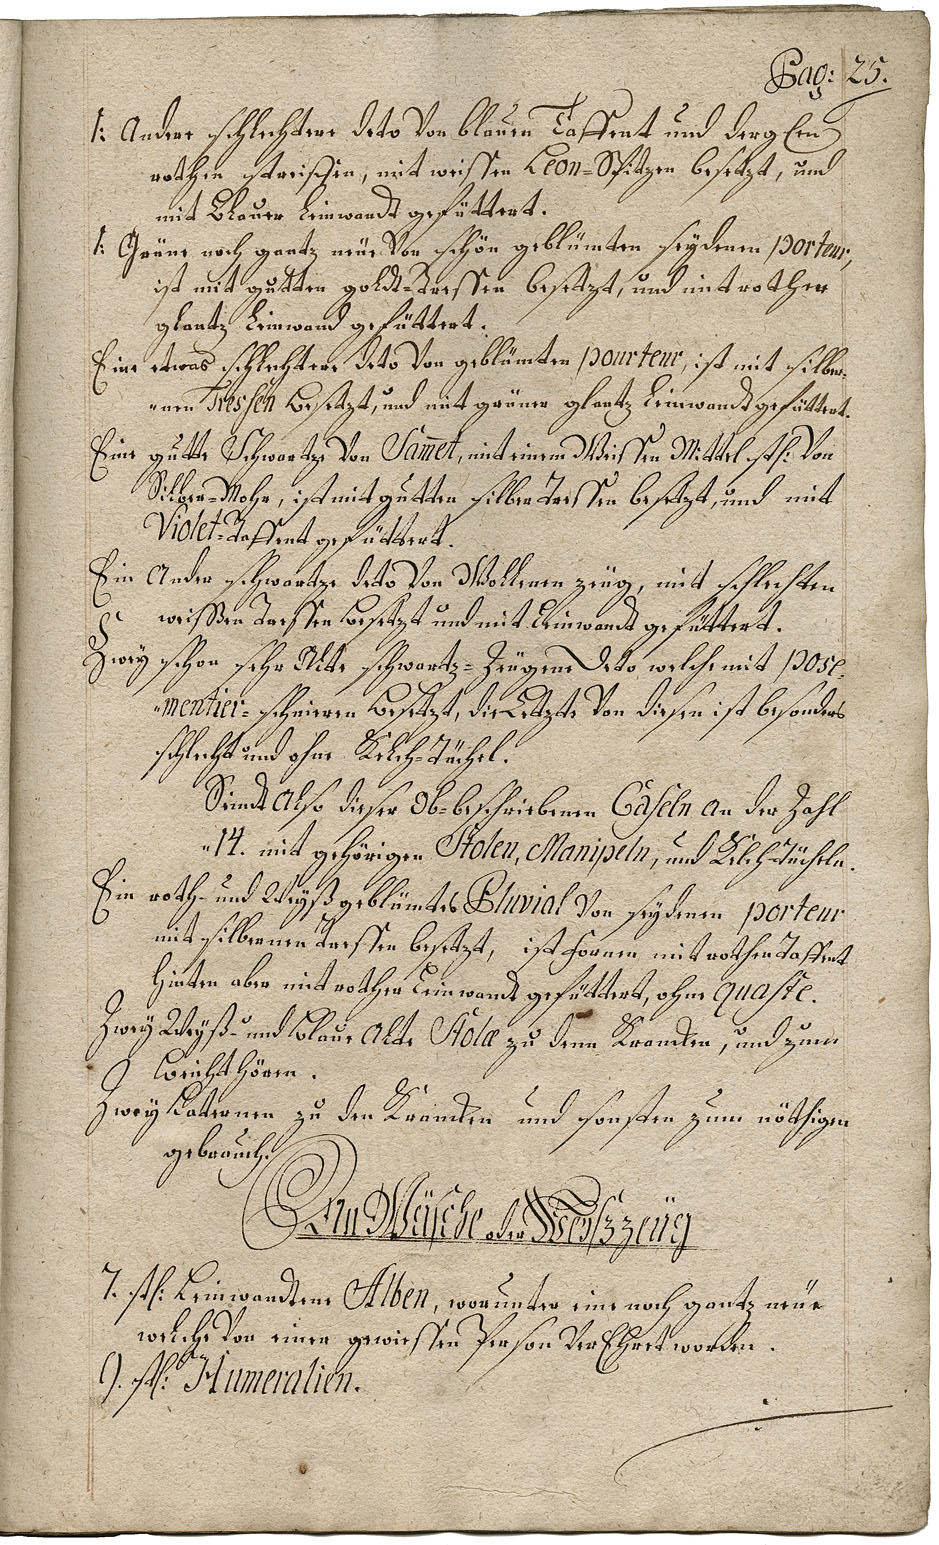 Pag: 25.
1: Andere schlechtere deto von blauen Taffent und derglen
rothen streiffen, mit weissen Leon=Spitzen besetzt, und
mit blauer Leinwandt gefüttert.
1: Grüne noch gantz neüe von schön geblümten seydenen porteur,
ist mit gutten goldt=Tressen besetzt, und mit rother
glantz Leinwand gefüttert.
Eine etwas schlechtere deto von geblümten pourteur, ist mit silber=
=nen Tressen besetzt, und mit grüner glantz Leinwandt gefüttert.
Eine gutte Schwartze von Sam̄et, mit einem Weissen Mittel stk: von
Silber=Mohr, ist mit gutten silber Tressen besetzt, und mit
Violet=Taffent gefüttert.
Ein Ander schwartze deto von Wollenen zeüg, mit schlechten
weissen Tressen besetzt und mit Leinwandt gefüttert.
Zwey schon sehr Alte schwartz=Zeügene deto welche mit pose=
=mentier=schnieren besetzt, die Letzte von diesen ist besonders
schlecht und ohne Kelch=Tüchel.
Seindt Also dieser Ob=beschriebenen Caseln an der Zahl
=14. mit gehörigen Stolen, Manipeln, und Kelch=Tücheln.
Ein roth= und Weyß geblümtes Pluvial von seydenen porteur
mit silbernen Tressen besetzt, ist fornen mit rothen Taffent
hinten aber mit rother Leinwandt gefüttert, ohne quaste.
Zwey Weyß= und blaue Alte Stolæ zu denn Krancken, und zum
beicht hören.
Zwey Laternen zu den Krancken und sonsten zum nöthigen
gebrauch.
An Wäsche oder Weyßzeüg
7. stk: Leinwandtene Alben, worunter eine noch gantz neüe
welche von einer gewiessen Person verEhret worden.
9. stk: Humeralien.